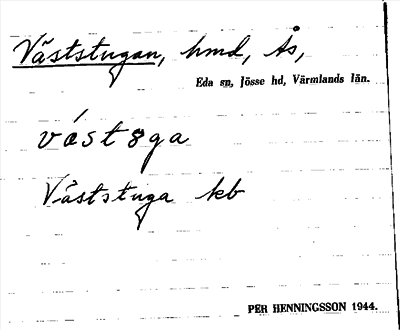 Väststugan, hmd, Ås,
Eda sn, Jösse hd, Värmlands län.
våstsga
Väststuga kb
PER HENNINGSSON 1944.